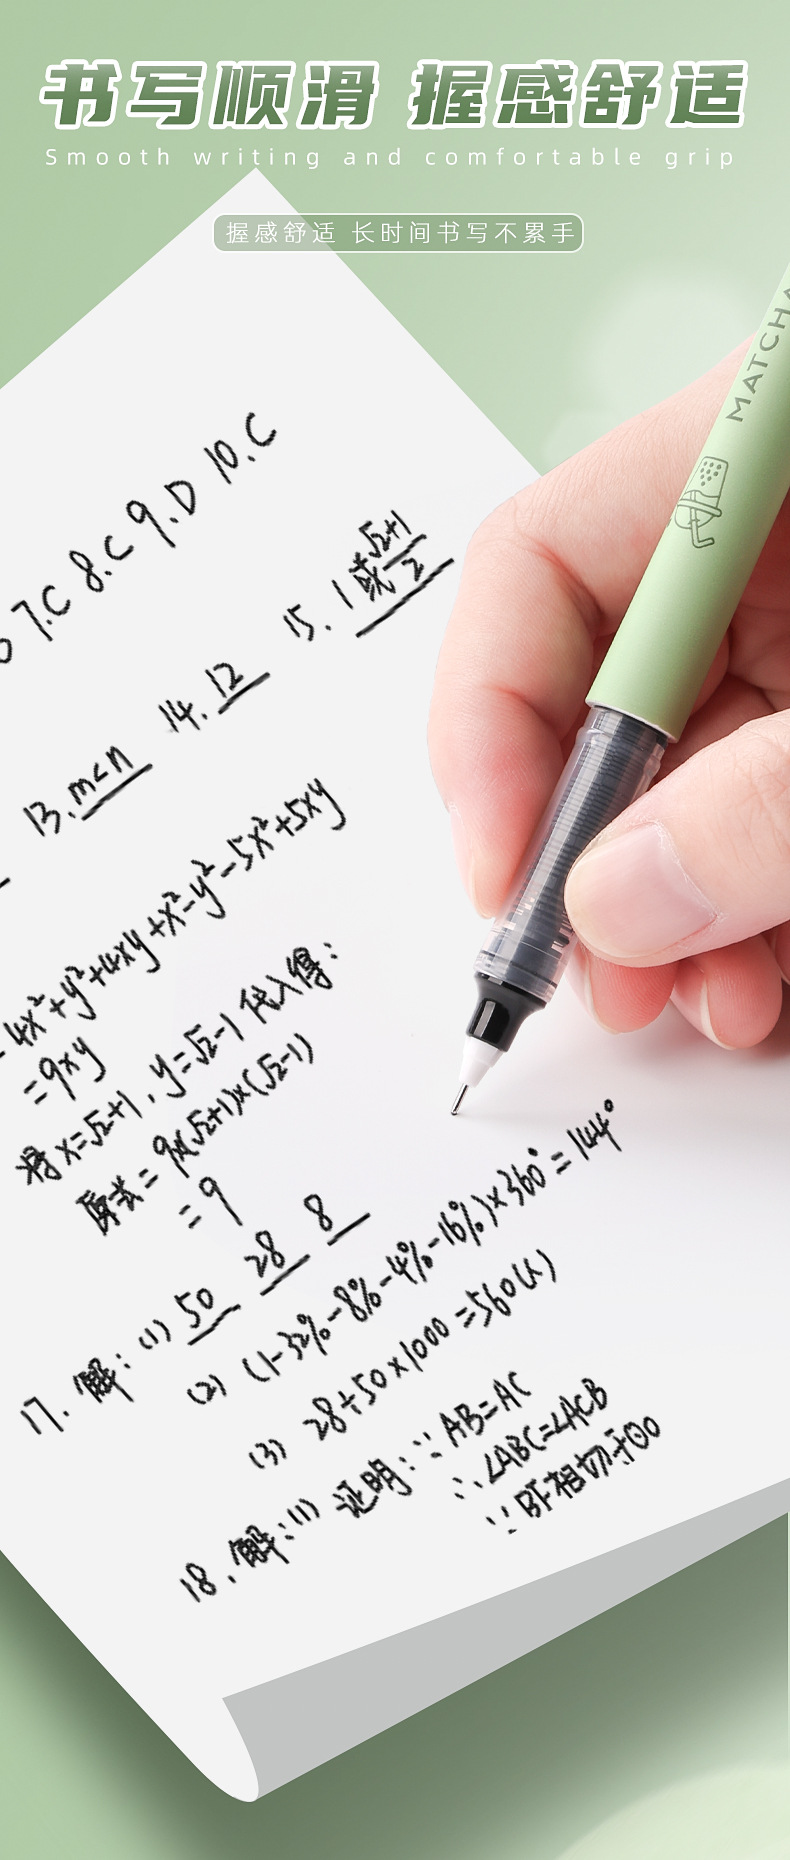 书写顺滑 握感舒适
Smooth writing and comfortable grip
握感舒适 长时间书写不累手
MATCHA
7.C 8.C 9.D 10.C
13.m<n 14.12 15.1或√2+1/2
4x²+y²+4xy+x²-y²-5x²+5xy
=9xy
将x=√2+1,y=√2-1代入得:
原式=9×(√2+1)×(√2-1)
=9
17.解:(1)50 28 8
(2)(1-32%-8%-4%-16%)×360°=144°
(3)28÷50×1000=560(人)
18.解:(1)证明:∵AB=AC
∴∠ABC=∠ACB
∵BF相切于⊙O